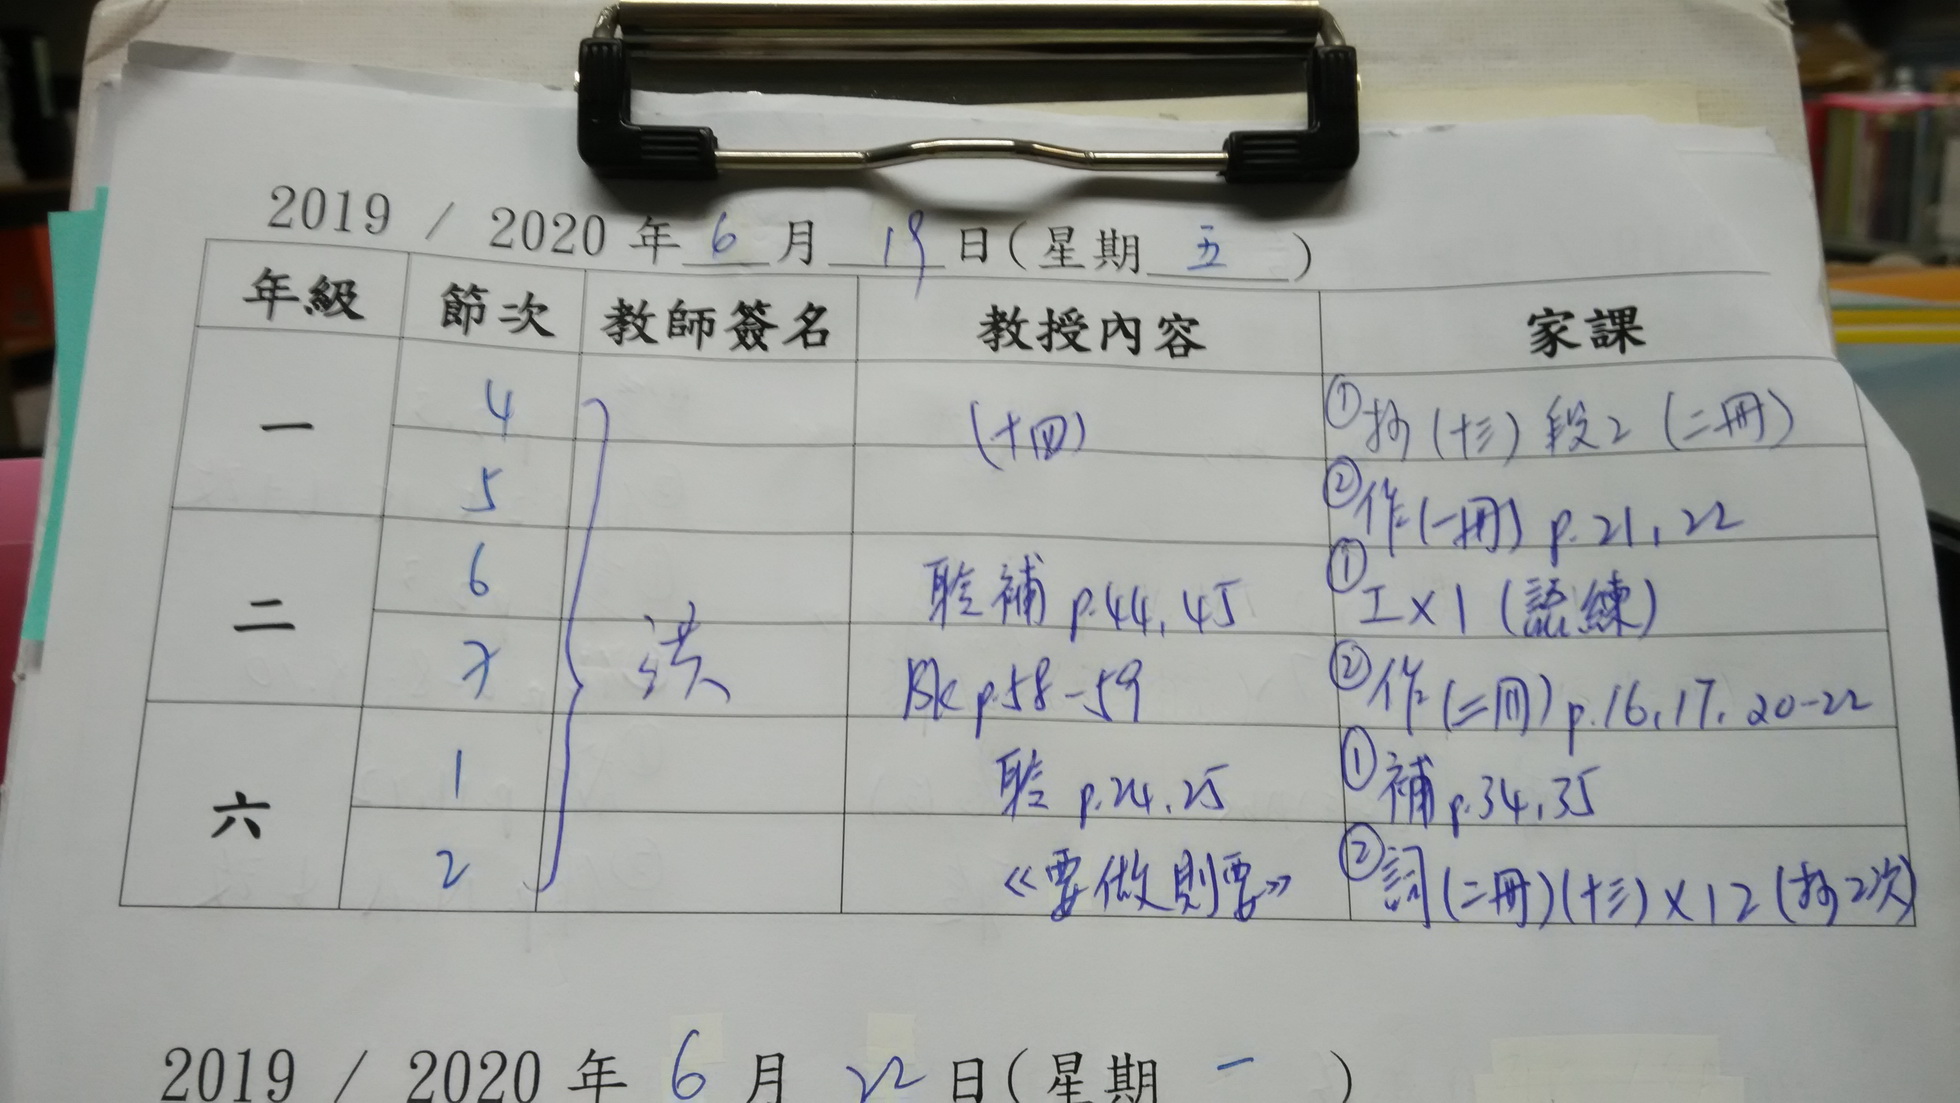 2019 / 2020 年 6 月 19 日(星期 五 )
年級 節次 教師簽名 教授內容 家課
一 4 (十四) ①抄(十三)段2(二冊)
5 ②作(一冊) p.21, 22
二 6 聆補 p.44, 45 ①工×1(語練)
7 洪 Bk p.58-59 ②作(二冊) p.16, 17, 20-22
六 1 聆 p.24, 25 ①補 p.34, 35
2 《要做則要》 ②詞(二冊)(十三)×12(抄2次)
2019 / 2020 年 6 月 22 日(星期 一 )